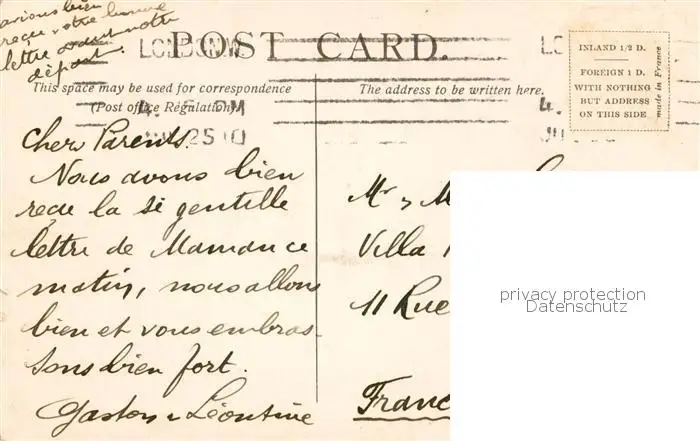 avions bien
reçu votre bonne
lettre avant notre
départ.
LONDON.W
POST CARD.
INLAND 1/2 D.
FOREIGN 1 D.
WITH NOTHING
BUT ADDRESS
ON THIS SIDE
made in France
This space may be used for correspondence
(Post office Regulation).
The address to be written here.
25 10
Cher Parents.
Nous avons bien
reçu la si gentille
lettre de Maman ce
matin, nous allons
bien et vous embras-
sons bien fort.
Gaston & Léontine
Mr & M
Villa
11 Rue
France
privacy protection
Datenschutz